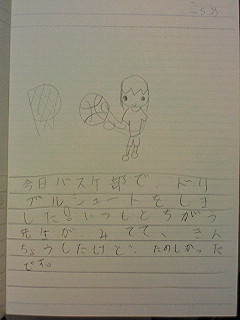 今日バスケ部で、ドリ
ブルシュートをしま
した!いつもとちがう
先生が、みてて、きん
ちょうしたけど、たのしかった
です。